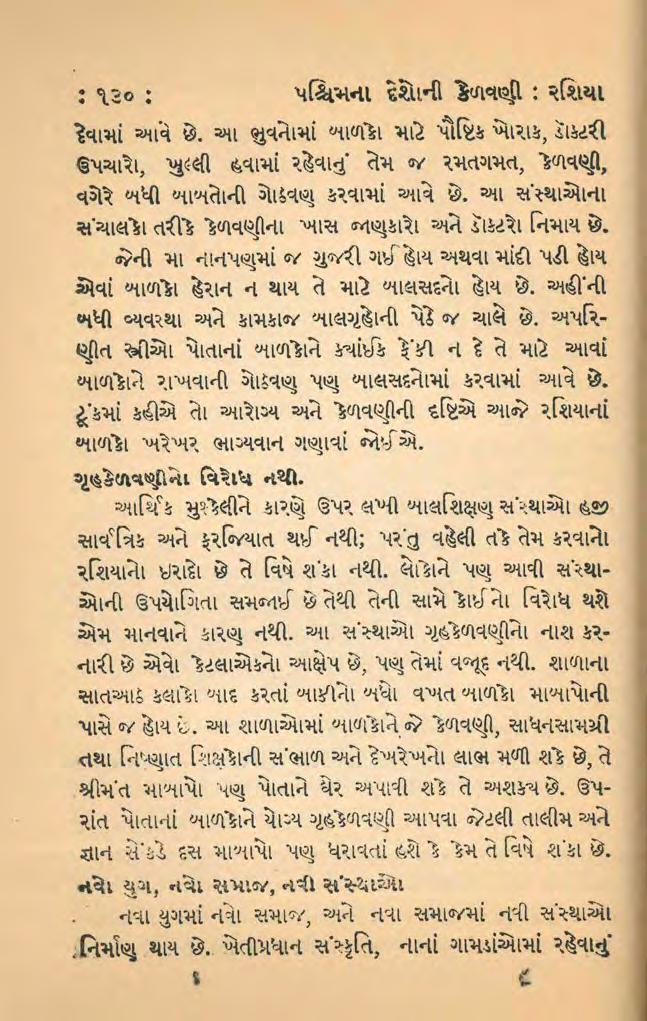 : ૧૩૦ : પશ્ચિમના દેશોની કેળવણી : રશિયા
દેવામાં આવે છે. આ ભુવનોમાં બાળકો માટે પૌષ્ટિક ખોરાક, ડૉક્ટરી
ઉપચારો, ખુલ્લી હવામાં રહેવાનું તેમ જ રમતગમત, કેળવણી,
વગેરે બધી બાબતોની ગોઠવણ કરવામાં આવે છે. આ સંસ્થાઓના
સંચાલકો તરીકે કેળવણીના ખાસ જાણકારો અને ડૉક્ટરો નિમાય છે.
જેની મા નાનપણમાં જ ગુજરી ગઈ હોય અથવા માંદી પડી હોય
એવાં બાળકો હેરાન ન થાય તે માટે બાલસદનો હોય છે. અહીંની
બધી વ્યવસ્થા અને કામકાજ બાલગૃહોની પેઠે જ ચાલે છે. અપરિ-
ણીત સ્ત્રીઓ પોતાનાં બાળકોને ક્યાંઈક ફેંકી ન દે તે માટે આવાં
બાળકોને રાખવાની ગોઠવણ પણ બાલસદનોમાં કરવામાં આવે છે.
ટૂંકમાં કહીએ તો આરોગ્ય અને કેળવણીની દૃષ્ટિએ આજે રશિયાનાં
બાળકો ખરેખર ભાગ્યવાન ગણાવાં જોઈએ.
ગૃહકેળવણીનો વિરોધ નથી.
આર્થિક મુશ્કેલીને કારણે ઉપર લખી બાલશિક્ષણ સંસ્થાઓ હજી
સાર્વત્રિક અને ફરજિયાત થઈ નથી; પરંતુ વહેલી તકે તેમ કરવાનો
રશિયાનો ઇરાદો છે તે વિષે શંકા નથી. લોકોને પણ આવી સંસ્થા-
ઓની ઉપયોગિતા સમજાઈ છે તેથી તેની સામે કોઈનો વિરોધ થશે
એમ માનવાને કારણ નથી. આ સંસ્થાઓ ગૃહકેળવણીનો નાશ કર-
નારી છે એવો કેટલાએકનો આક્ષેપ છે, પણ તેમાં વજૂદ નથી. શાળાના
સાતઆઠ કલાકો બાદ કરતાં બાકીનો બધો વખત બાળકો માબાપોની
પાસે જ હોય છે. આ શાળાઓમાં બાળકોને જે કેળવણી, સાધનસામગ્રી
તથા નિષ્ણાત શિક્ષકોની સંભાળ અને દેખરેખનો લાભ મળી શકે છે, તે
શ્રીમંત માબાપો પણ પોતાને ઘેર અપાવી શકે તે અશક્ય છે. ઉપ-
રાંત પોતાનાં બાળકોને યોગ્ય ગૃહકેળવણી આપવા જેટલી તાલીમ અને
જ્ઞાન સેંકડે દસ માબાપો પણ ધરાવતાં હશે કે કેમ તે વિષે શંકા છે.
નવો યુગ, નવો સમાજ, નવી સંસ્થાઓ
નવા યુગમાં નવો સમાજ, અને નવા સમાજમાં નવી સંસ્થાઓ
નિર્માણ થાય છે. ખેતીપ્રધાન સંસ્કૃતિ, નાનાં ગામડાંઓમાં રહેવાનું